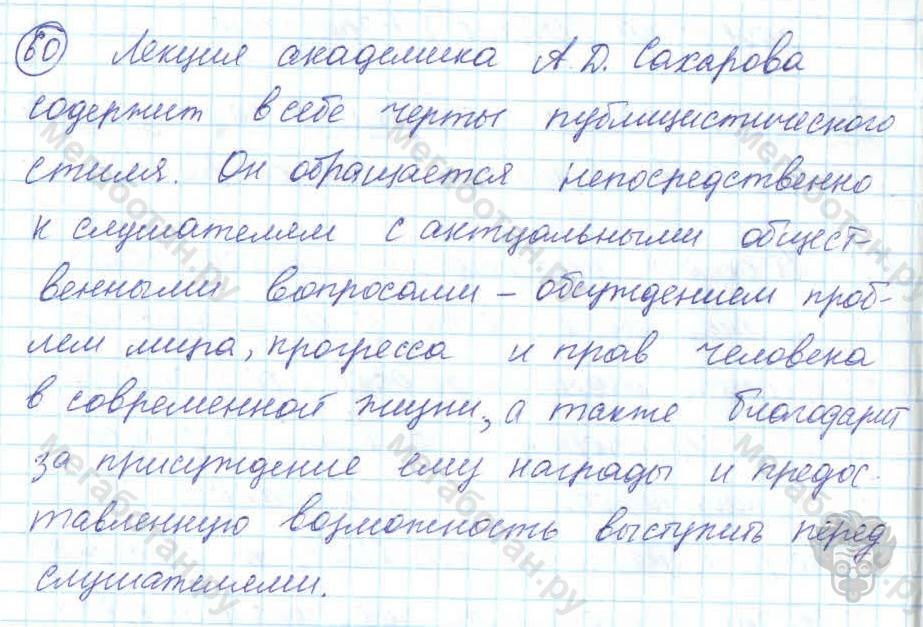 60 Лекция академика А.Д. Сахарова
содержит в себе черты публицистического
стиля. Он обращается непосредственно
к слушателям с актуальными общест-
венными вопросами – обсуждением проб-
лем мира, прогресса и прав человека
в современной жизни, а также благодарит
за присуждение ему награды и предос-
тавленную возможность выступить перед
слушателями.
Мегаботан.ру
Мегаботан.ру
Мегаботан.ру
Мегаботан.ру
Мегаботан.ру
Мегаботан.ру